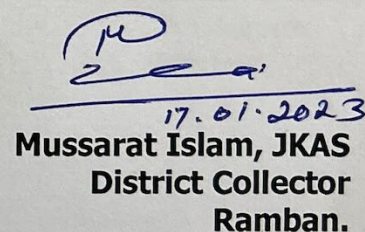 17.01.2023
Mussarat Islam, JKAS
District Collector
Ramban.